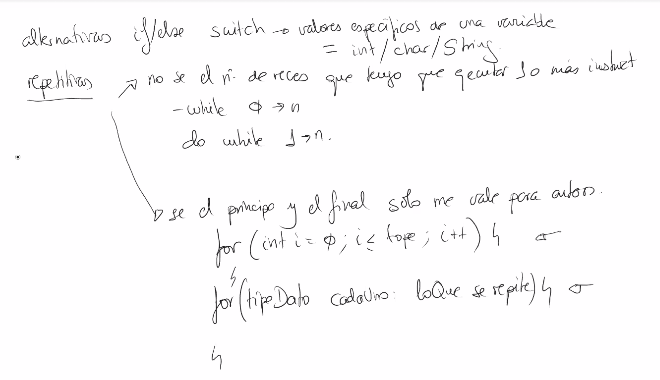 alternativas if/else switch → valores específicos de una variable
= int/char/String
repetitivas → no se el nº de veces que tengo que ejecutar 1 o más instruct
- while 0 → n
do while 1 → n.
→ se el principio y el final solo me vale para
for (int i = 0; i ≤ tope; i++) {
}
for (tipoDato cadaUno: loQue se repite) {
}